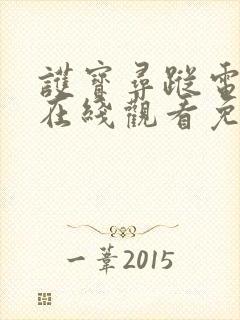 護寶尋蹤電
在綫觀看免
一葦2015